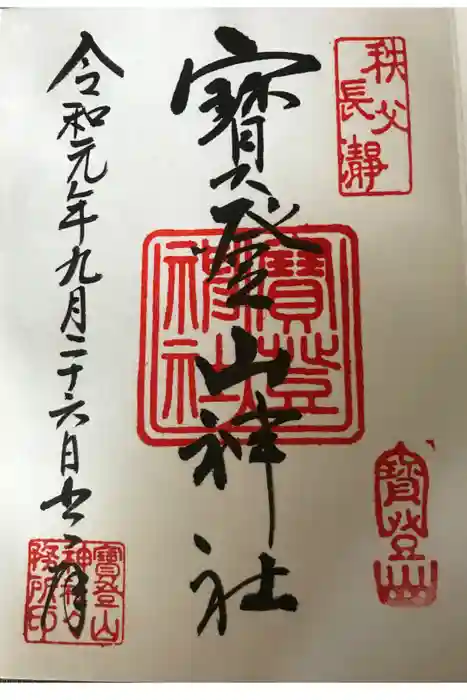 秩父
長瀞
寶登山神社
寶登山
神社
寶登山
令和元年九月二十六日
寶登山
神社
務所印